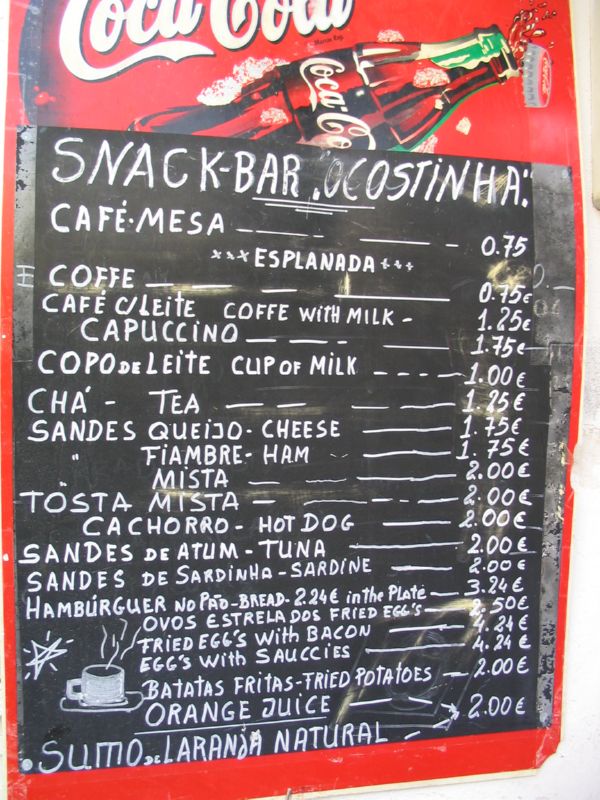 Coca-Cola
Coca-Cola
SNACK-BAR "OCOSTINHA."
CAFÉ-MESA 0.75
*** ESPLANADA +++
COFFE 0.75€
CAFÉ C/LEITE COFFE WITH MILK - 1.25€
CAPUCCINO 1.75€
COPO DE LEITE CUP OF MILK 1.00€
CHÁ - TEA 1.25€
SANDES QUEIJO - CHEESE 1.75€
" FIAMBRE - HAM 1.75€
MISTA 2.00€
TOSTA MISTA 2.00€
CACHORRO - HOT DOG 2.00€
SANDES DE ATUM - TUNA 2.00€
SANDES DE SARDINHA - SARDINE 2.00€
HAMBÚRGUER NO PÃO-BREAD-2.24€ in the Plate 3.24€
OVOS ESTRELADOS FRIED EGG'S 2.50€
FRIED EGG'S WITH BACON 4.24€
EGG'S WITH SAUCCIES 4.24€
BATATAS FRITAS-FRIED POTATOES 2.00€
ORANGE JUICE 2.00€
SUMO DE LARANJA NATURAL